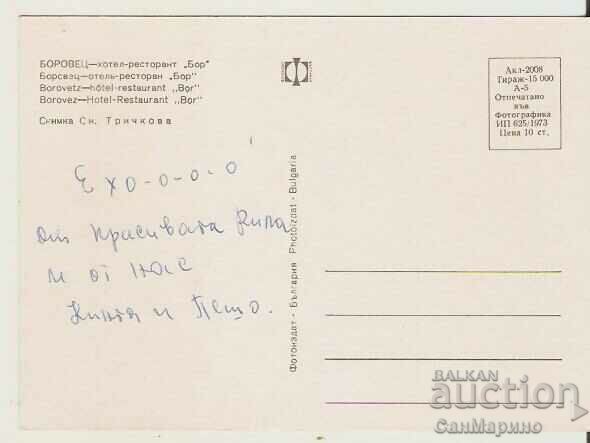 БОРОВЕЦ—хотел-ресторант „Бор"
Боровец—отель-ресторан „Бор"
Borovetz—hôtel-restaurant „Bor"
Borovez—Hotel-Restaurant „Bor"
Снимка Сн. Тричкова
Ехо-о-о-о
от красивата Рила
и от нас
и Пешо.
Фотоиздат - България Photoizdat - Bulgaria
Акл-2008
Тираж-15 000
А-5
Отпечатано
във
Фотографика
ИП 625/1973
Цена 10 ст.
BALKAN
auction
СанМарино